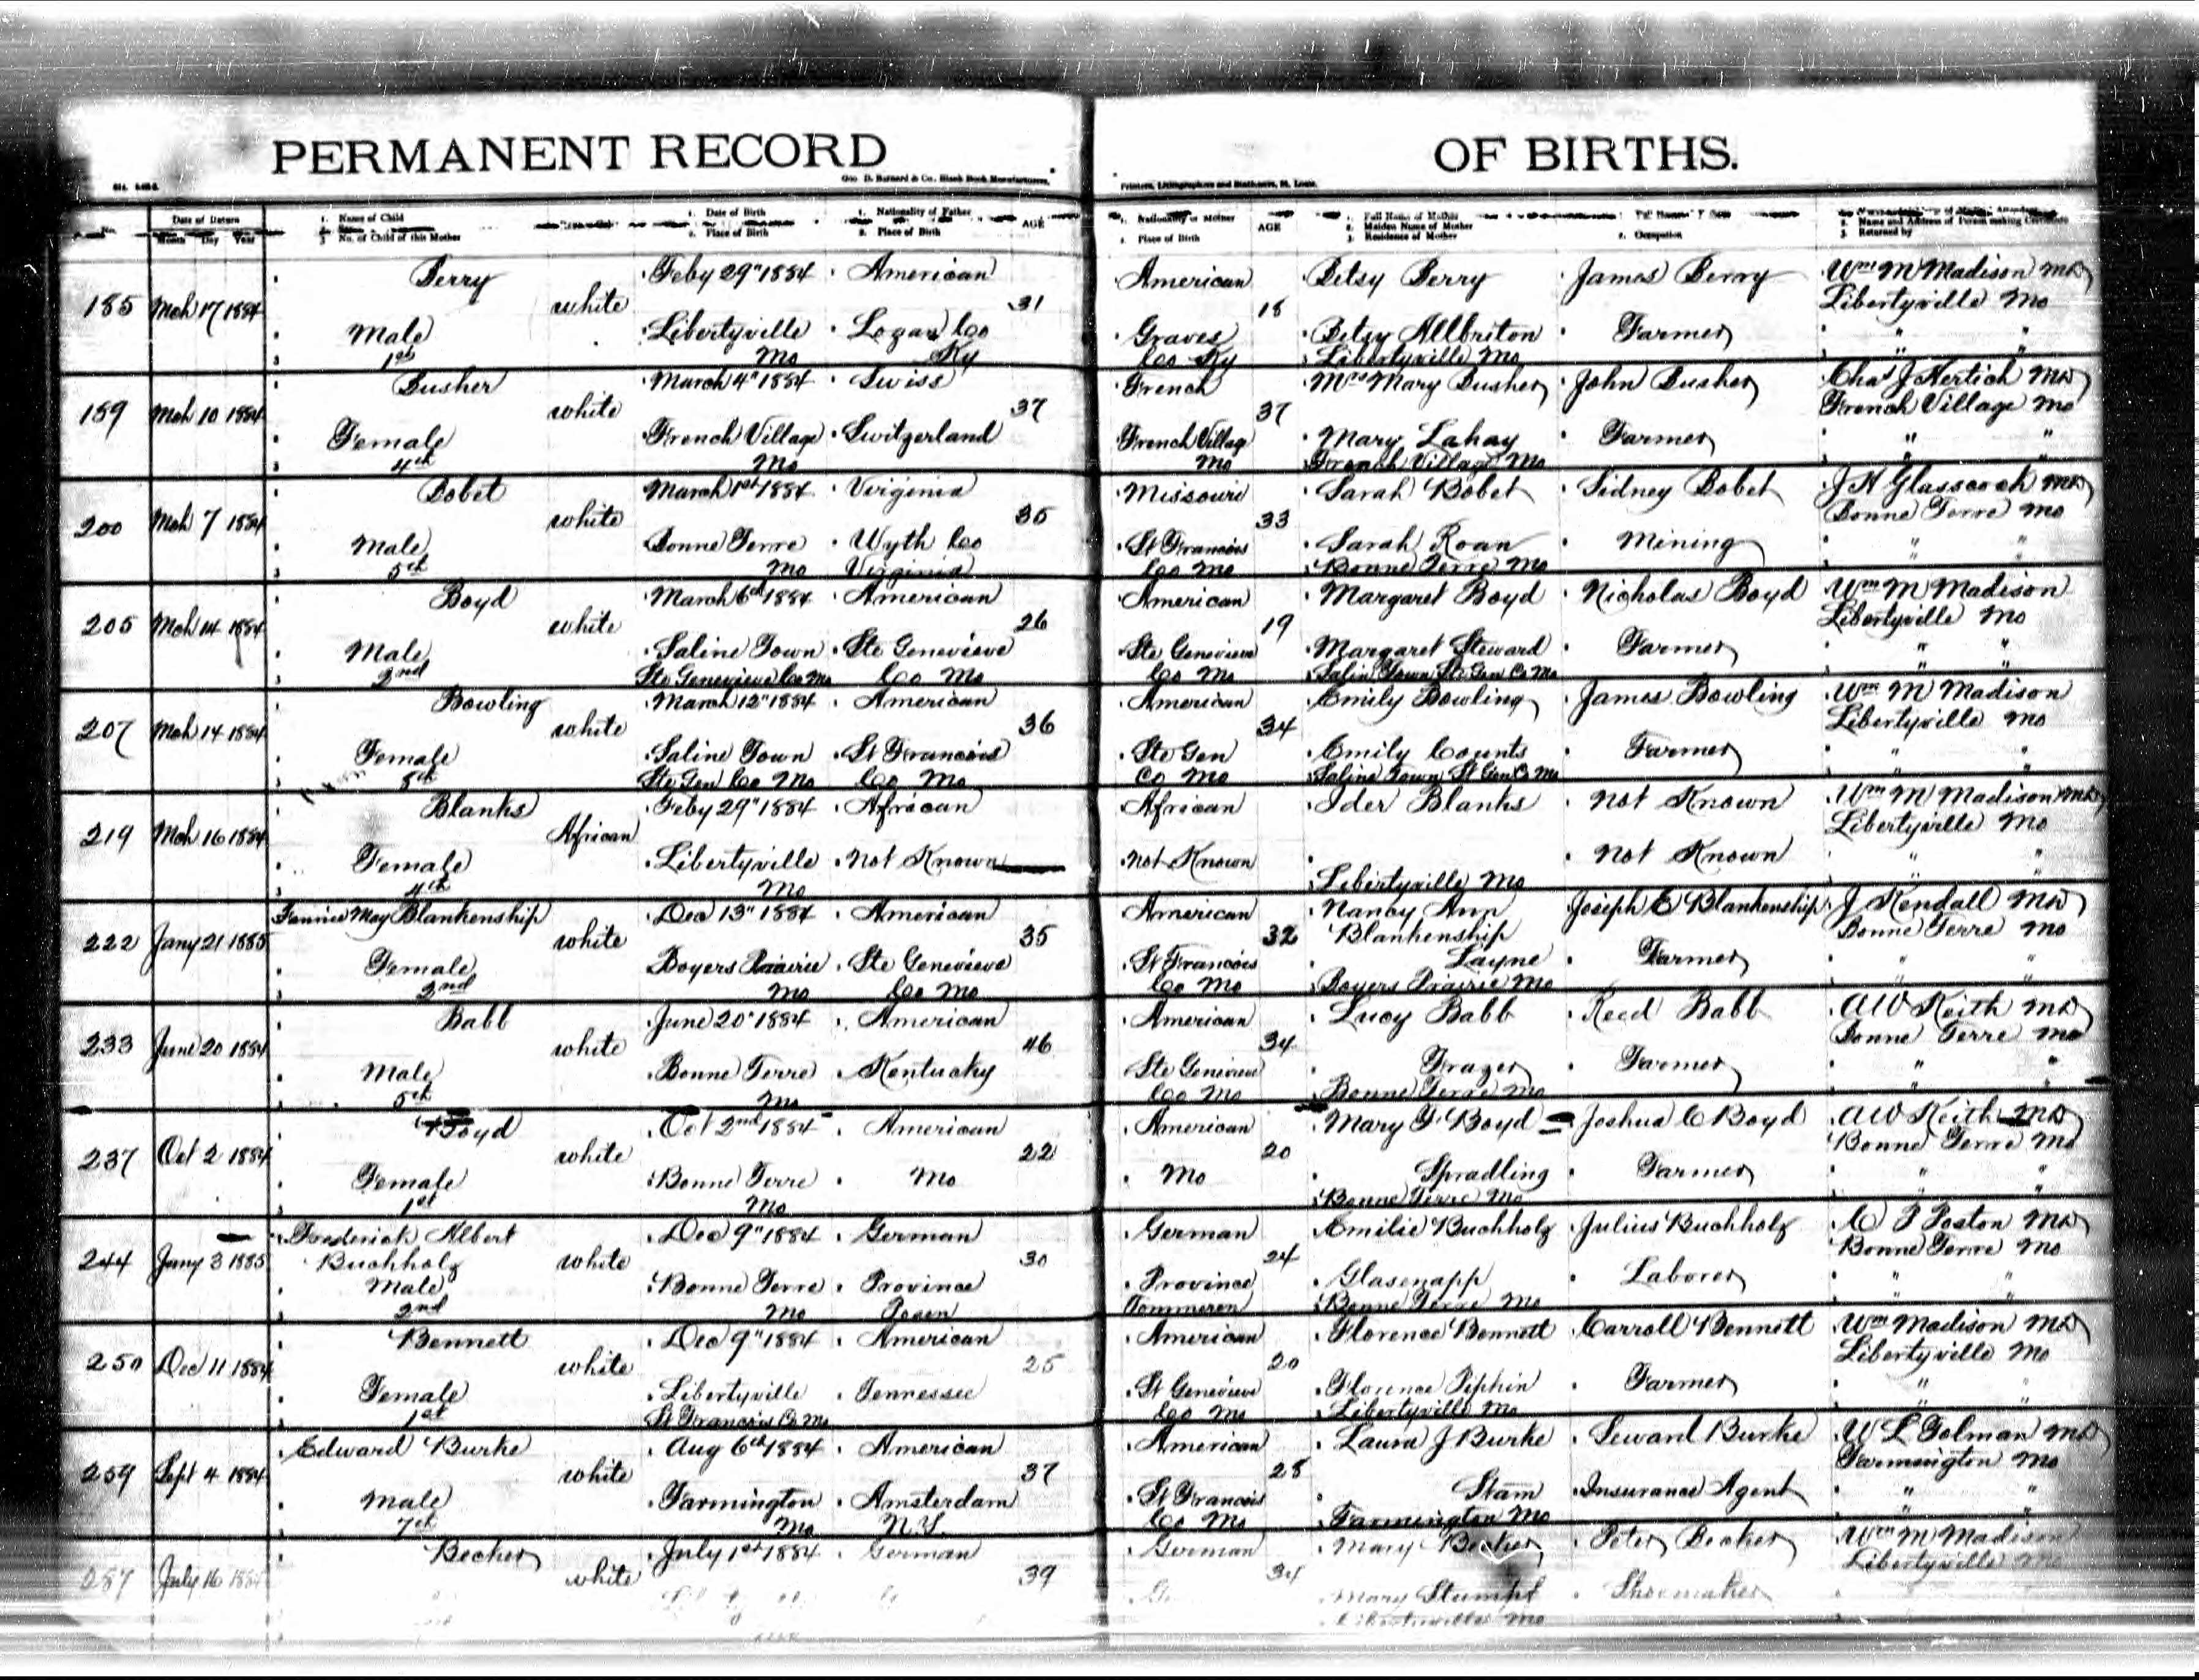 PERMANENT RECORD OF BIRTHS.
Geo. D. Barnard & Co., Blank Book Manufacturers, Printers, Lithographers and Stationers, St. Louis.
No. Date of Return 1. Name of Child 1. Date of Birth 1. Nationality of Father AGE 1. Nationality of Mother AGE 1. Full Name of Mother
Month Day Year 3. No. of Child of this Mother 2. Place of Birth 2. Place of Birth 2. Place of Birth 2. Maiden Name of Mother 2. Occupation 2. Name and Address of Person making Certificate
3. Residence of Mother 3. Returned by
Berry Feby 29" 1884 American American Betsy Berry James Berry Wm M Madison MD
185 Mch 17 1884 white 31 18 Libertyville Mo
Male Libertyville Logan Co Graves Betsy Allbriton Farmer " "
1st Mo Ky Co Ky Libertyville Mo " "
Busher March 4" 1884 Swiss French Mrs Mary Busher John Busher Chas J Hertich MD
189 Mch 10 1884 white 37 37 French Village Mo
Female French Village Switzerland French Village Mary Lahay Farmer " "
4th Mo Mo French Village Mo
Bobet March 1st 1884 Virginia Missouri Sarah Bobet Sidney Bobet J H Glasscock MD
200 Mch 7 1884 white 35 33 Bonne Terre Mo
Male Bonne Terre Wyth Co St Francois Sarah Roan Mining " "
5th Mo Virginia Co Mo Bonne Terre Mo " "
Boyd March 6th 1884 American American Margaret Boyd Nicholas Boyd Wm M Madison
205 Mch 14 1884 white 26 19 Libertyville Mo
Male Saline Town Ste Genevieve Ste Genevieve Margaret Steward Farmer " "
2nd Ste Genevieve Co Mo Co Mo Co Mo Salin Town St Gen Co Mo " "
Bowling March 12" 1884 American American Emily Bowling James Bowling Wm M Madison
207 Mch 14 1884 white 36 34 Libertyville Mo
Female Saline Town St Francois Ste Gen Emily Counts Farmer " "
8th Ste Gen Co Mo Co Mo Co Mo Saline Town St Gen Co Mo " "
Blanks Feby 29" 1884 African African Ider Blanks Not Known Wm M Madison MD
219 Mch 16 1884 African Libertyville Mo
Female Libertyville Not Known Not Known Not Known " "
4th Mo Libertyville Mo " "
Fannie May Blankenship Dec 13" 1884 American American Nancy Ann Joseph E Blankenship J Kendall MD
222 Jany 21 1885 white 35 32 Blankenship Bonne Terre Mo
Female Boyers Prairie Ste Genevieve St Francois Layne Farmer " "
2nd Mo Co Mo Co Mo Boyers Prairie Mo " "
Babb June 20" 1884 American American Lucy Babb Reed Babb A W Keith MD
233 June 20 1884 white 46 34 Bonne Terre Mo
Male Bonne Terre Kentucky Ste Genevieve Frazer Farmer " "
5th Mo Co Mo Bonne Terre Mo " "
Boyd Oct 2nd 1884 American American Mary G Boyd Joshua C Boyd A W Keith MD
237 Oct 2 1884 white 22 20 Bonne Terre Mo
Female Bonne Terre Mo Mo Spradling Farmer " "
1st Mo Bonne Terre Mo " "
Frederick Albert Dec 9" 1884 German German Emilie Buchholz Julius Buchholz C P Poston MD
244 Jany 3 1885 Buchholz white 30 24 Bonne Terre Mo
Male Bonne Terre Province Province Glasenapp Laborer " "
2nd Mo Posen Pommeren Bonne Terre Mo " "
Bennett Dec 9" 1884 American American Florence Bennett Carroll Bennett Wm Madison MD
250 Dec 11 1884 white 25 20 Libertyville Mo
Female Libertyville Tennessee St Genevieve Florence Pipkin Farmer " "
1st St Francois Co Mo Co Mo Libertyville Mo " "
Edward Burke Aug 6th 1884 American American Laura J Burke Seward Burke W L Tolman MD
259 Sept 4 1884 white 37 28 Farmington Mo
Male Farmington Amsterdam St Francois Stam Insurance Agent " "
7th Mo N.Y. Co Mo Farmington Mo " "
Becker July 1st 1884 German German Mary Becker Peter Becker Wm M Madison
287 July 16 white 39 34 Libertyville Mo
Mary Stumpf Shoemaker
Mo